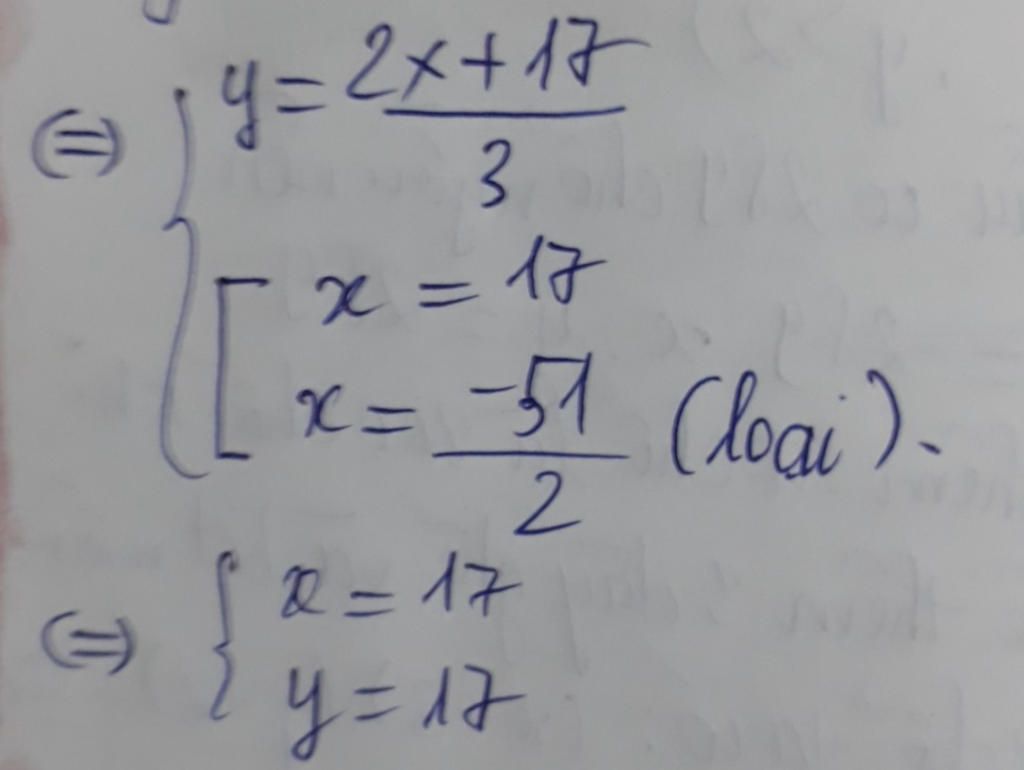 ⇔ { y = 2x + 17 / 3
[ x = 17
x = -51 / 2 (loại).
⇔ { x = 17
y = 17